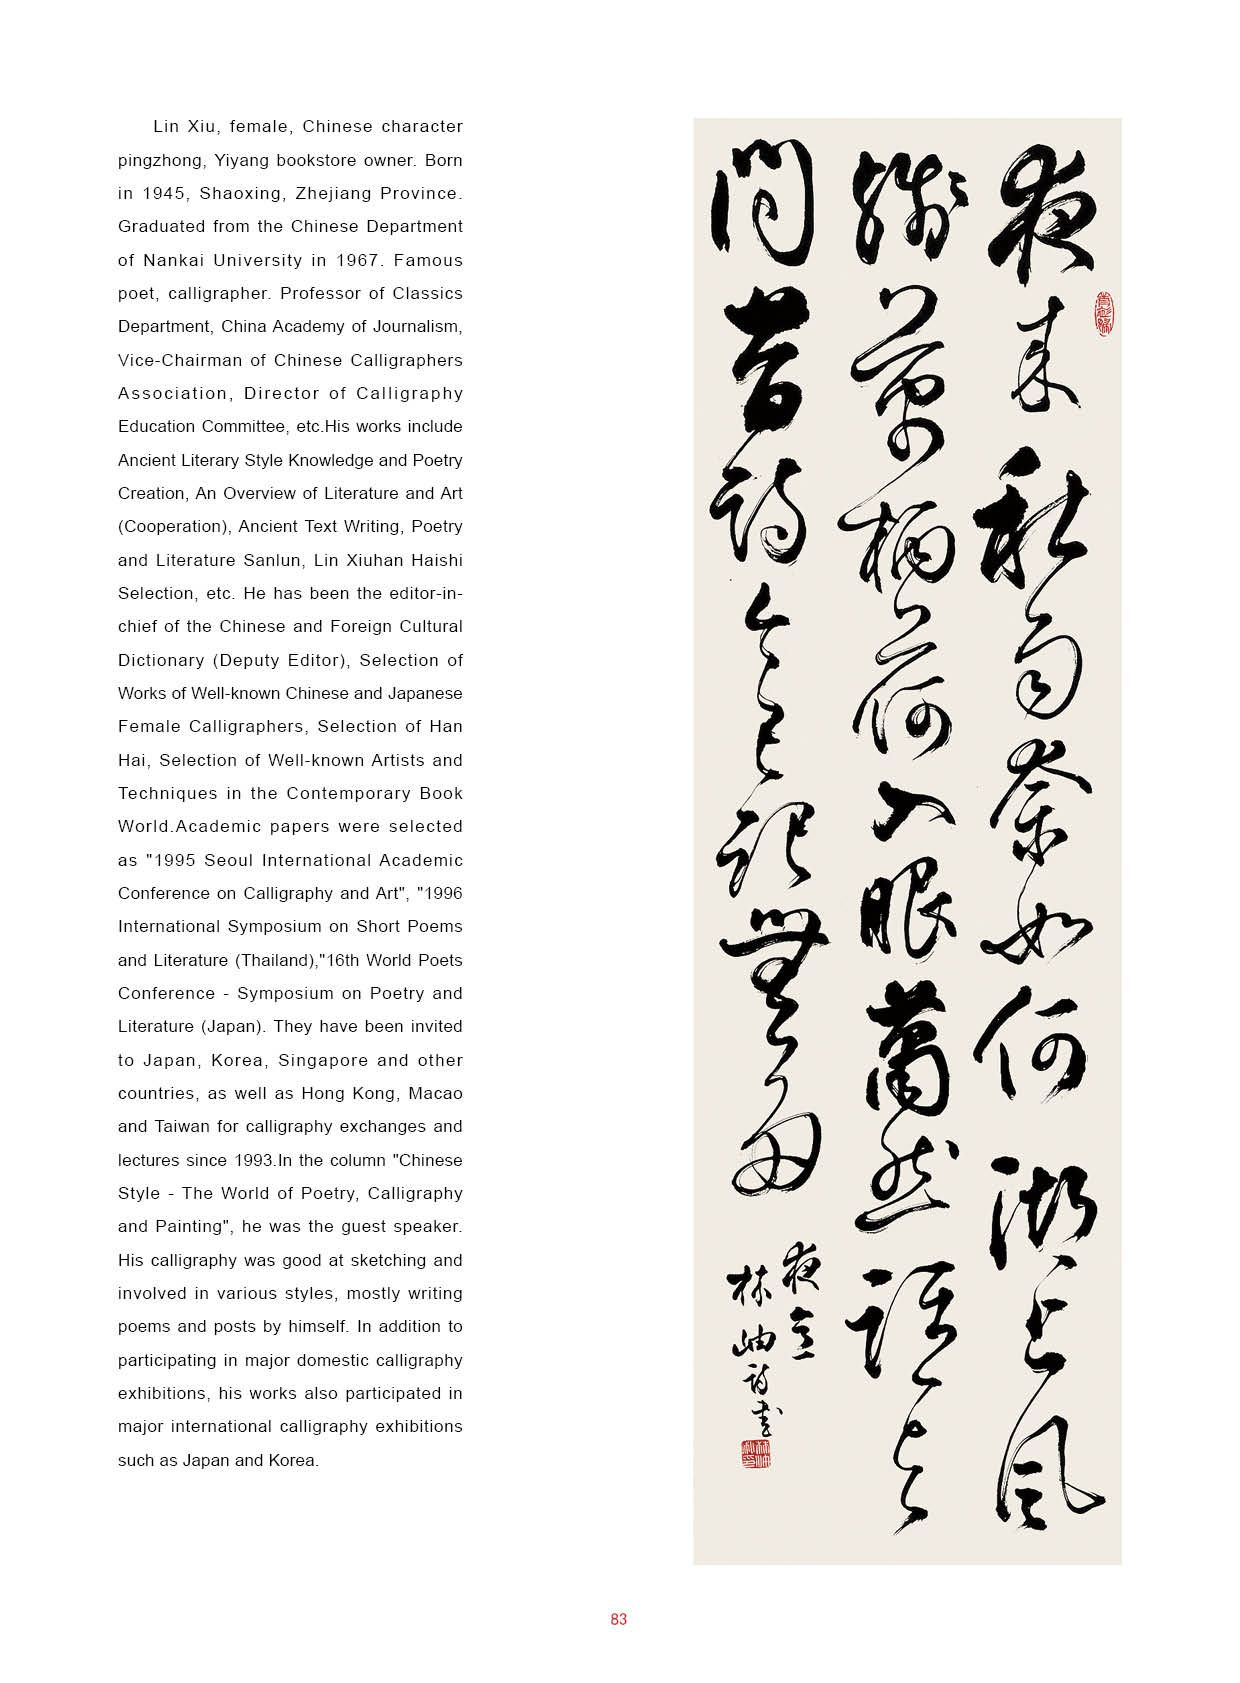 Lin Xiu, female, Chinese character
pingzhong, Yiyang bookstore owner. Born
in 1945, Shaoxing, Zhejiang Province.
Graduated from the Chinese Department
of Nankai University in 1967. Famous
poet, calligrapher. Professor of Classics
Department, China Academy of Journalism,
Vice-Chairman of Chinese Calligraphers
Association, Director of Calligraphy
Education Committee, etc.His works include
Ancient Literary Style Knowledge and Poetry
Creation, An Overview of Literature and Art
(Cooperation), Ancient Text Writing, Poetry
and Literature Sanlun, Lin Xiuhan Haishi
Selection, etc. He has been the editor-in-
chief of the Chinese and Foreign Cultural
Dictionary (Deputy Editor), Selection of
Works of Well-known Chinese and Japanese
Female Calligraphers, Selection of Han
Hai, Selection of Well-known Artists and
Techniques in the Contemporary Book
World.Academic papers were selected
as "1995 Seoul International Academic
Conference on Calligraphy and Art", "1996
International Symposium on Short Poems
and Literature (Thailand),"16th World Poets
Conference - Symposium on Poetry and
Literature (Japan). They have been invited
to Japan, Korea, Singapore and other
countries, as well as Hong Kong, Macao
and Taiwan for calligraphy exchanges and
lectures since 1993.In the column "Chinese
Style - The World of Poetry, Calligraphy
and Painting", he was the guest speaker.
His calligraphy was good at sketching and
involved in various styles, mostly writing
poems and posts by himself. In addition to
participating in major domestic calligraphy
exhibitions, his works also participated in
major international calligraphy exhibitions
such as Japan and Korea.
夜來秋雨奈如何湖上風
殘柄荷入眼然去
問詩今已記無多
夜
林岫詩書
83